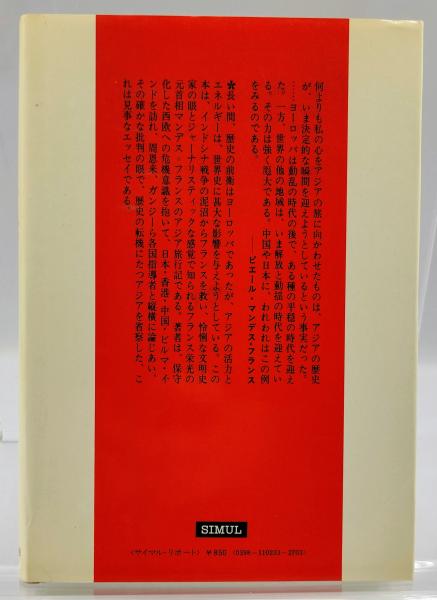 何よりも私の心をアジアの旅に向かわせたものは、アジアの歴史
が、いま決定的な瞬間を迎えようとしているという事実だった。
……ヨーロッパは動乱の時代の後で、ある種の平穏の時代を迎え
た。一方、世界の他の地域は、いま解放と動揺の時代を迎えてい
る。その力は強く厖大である。中国や日本に、われわれはこの例
をみるのである。
――ピエール・マンデス・フランス
★長い間、歴史の前衛はヨーロッパであったが、アジアの活力と
エネルギーは、世界史に甚大な影響を与えようとしている。この
本は、インドシナ戦争の泥沼からフランスを救い、怜悧な文明史
家の眼とジャーナリスティックな感覚で知られるフランス栄光の
元首相マンデス＝フランスのアジア旅行記である。著者は、保守
化した西欧への危機意識を抱いて、日本・香港・中国・ビルマ・イ
ンドを訪れ、周恩来、ガンジーら各国指導者と縦横に論じあい、
その確かな批判の眼で、歴史の転機にたつアジアを省察した、こ
れは見事なエッセイである。
SIMUL
〈サイマル・リポート〉 ¥850 (0398-110233-2703)